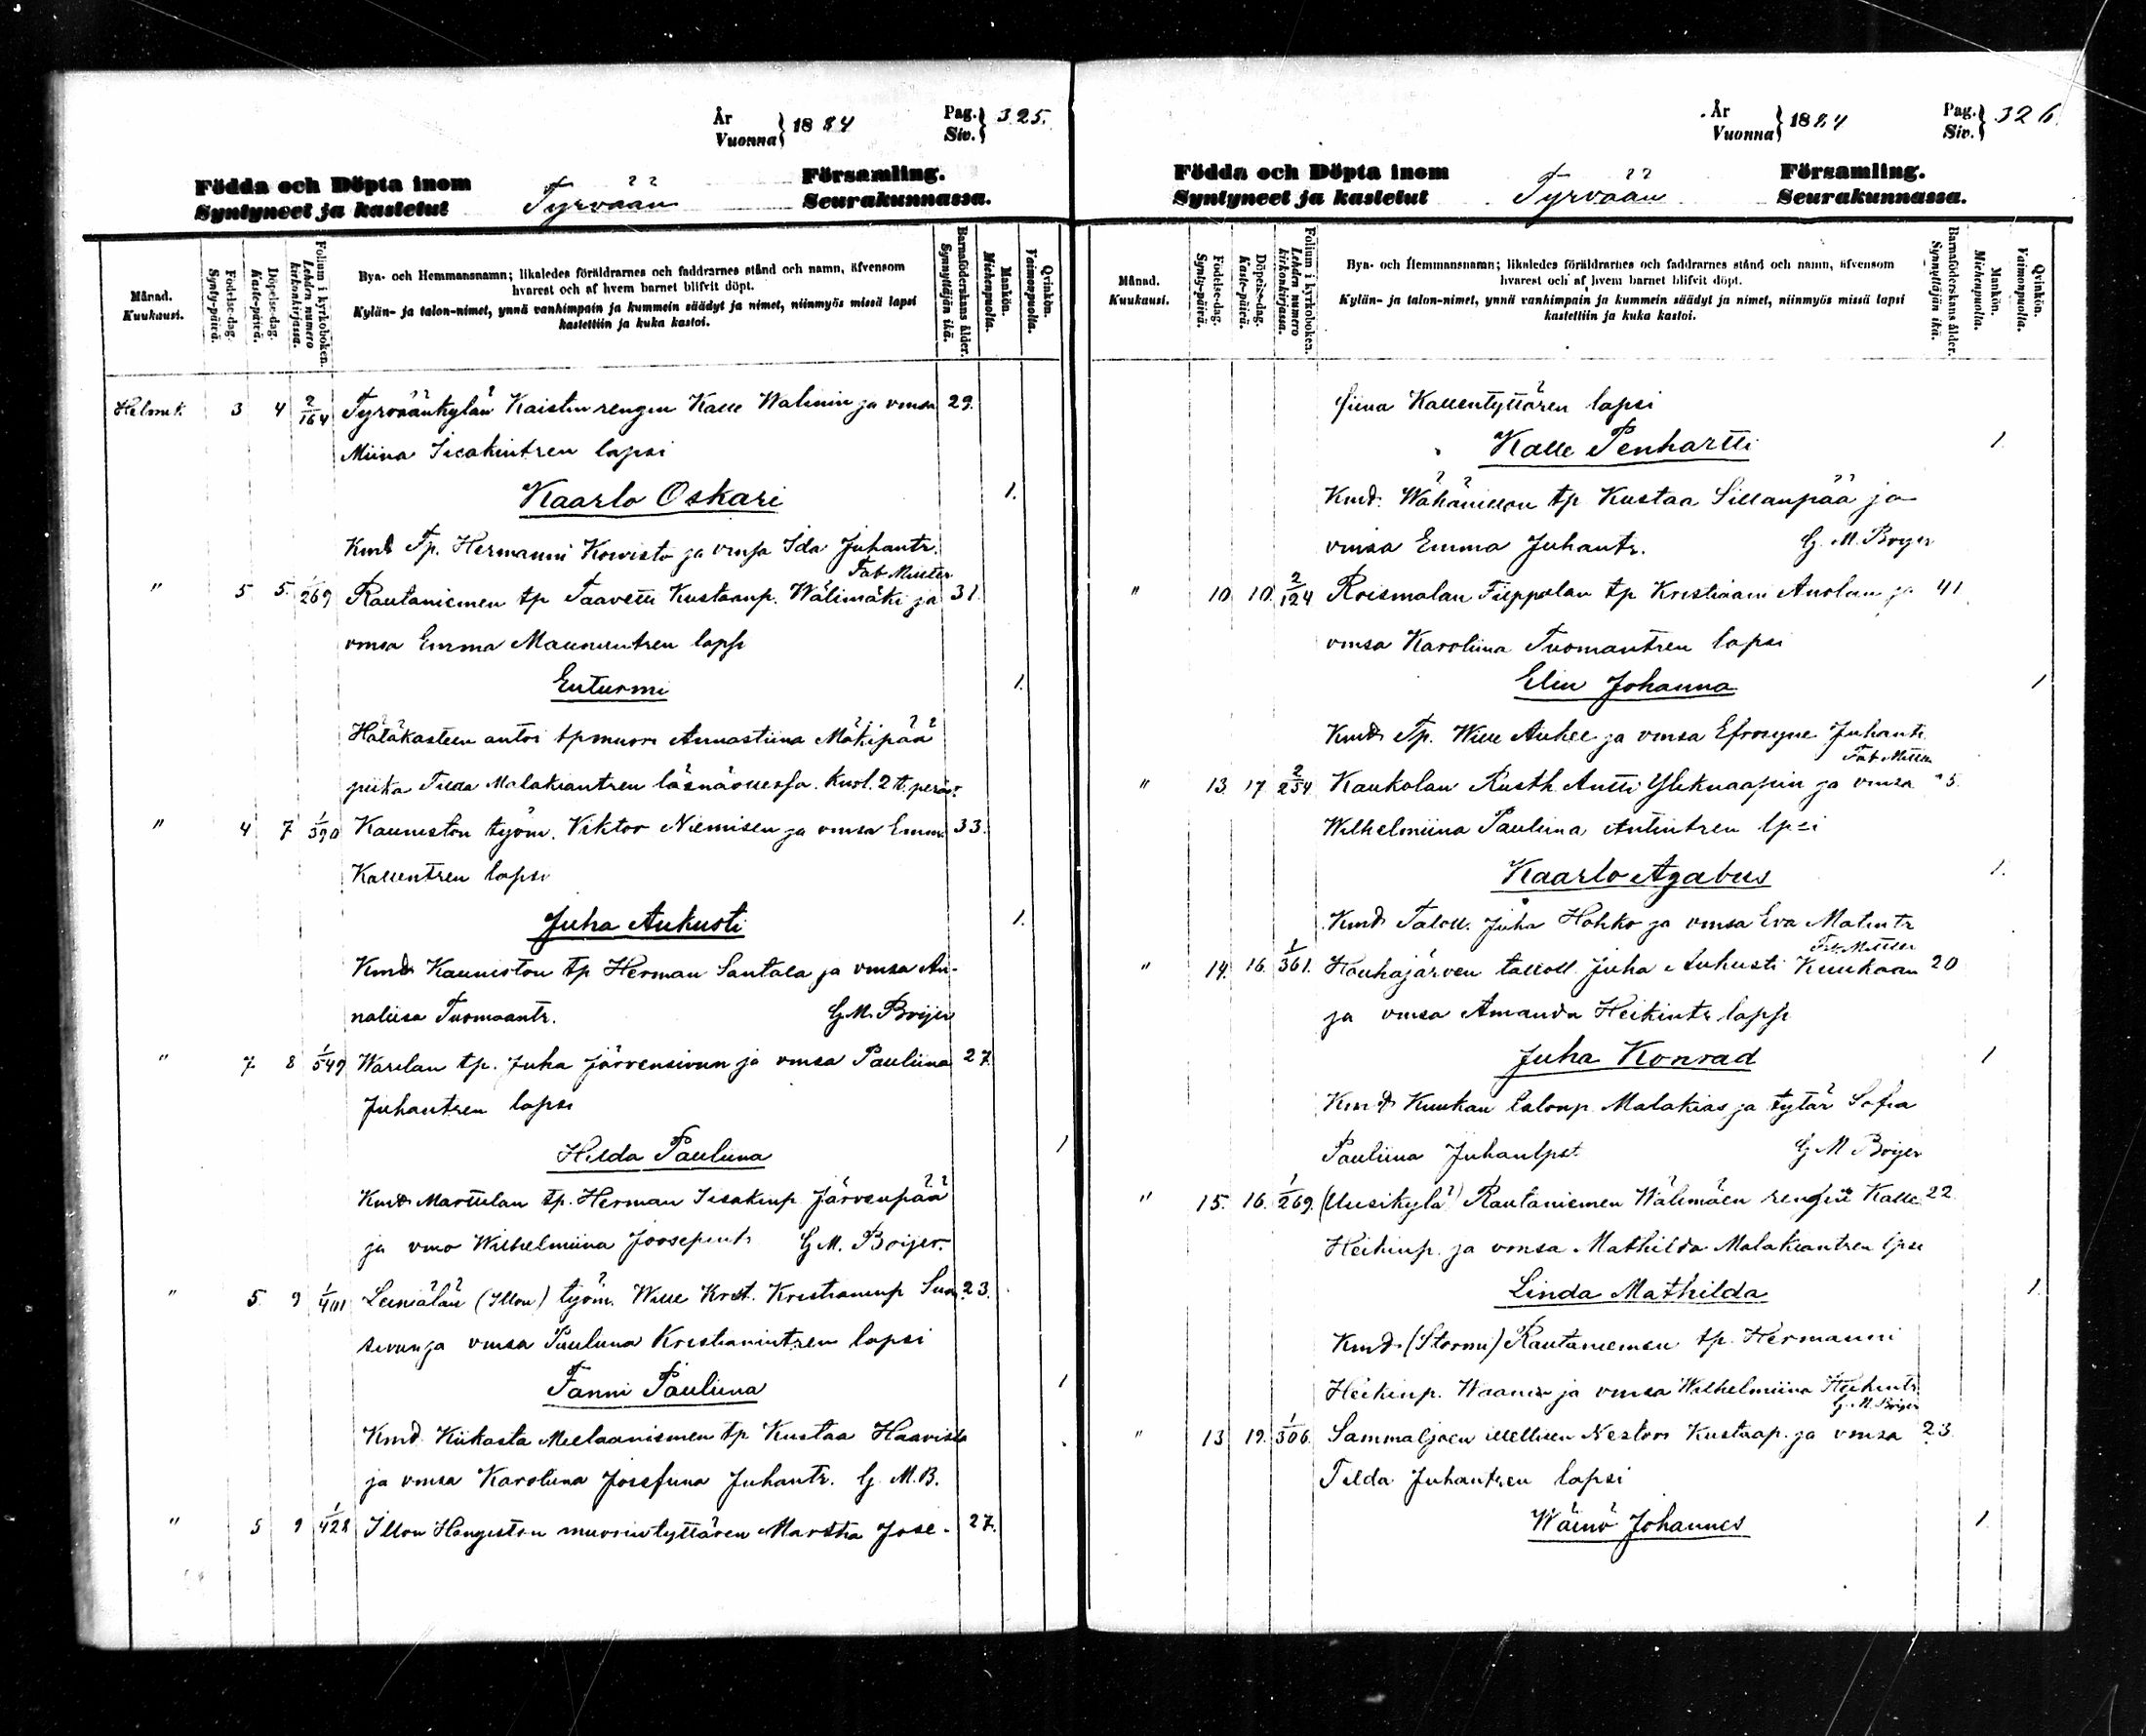 År
Vuonna } 1884 Pag.
Siv. } 325.
Födda och Döpta inom
Syntyneet ja kastetut Tyrvään Församling.
Seurakunnassa.
Månad.
Kuukausi.
Födelse-dag.
Synty-päivä.
Döpelse-dag.
Kaste-päivä.
Folium i kyrkoboken.
Lehden numero kirkonkirjassa.
Bya- och Hemmansnamn; likaledes föräldrarnes och faddrarnes stånd och namn, äfvensom
hvarest och af hvem barnet blifvit döpt.
Kylän- ja talon-nimet, ynnä vanhimpain ja kummein säädyt ja nimet, niinmyös missä lapsi
kastettiin ja kuka kastoi.
Barnaföderskans ålder.
Synnyttäjän ikä.
Mankön.
Miehenpuolia.
Qvinkön.
Vaimonpuolia.
Helmik. 3 4 2/164 Tyrväänkylän Kaistin rengin Kalle Walinin ja vmsa 29.
Miina Isakintren lapsi
Kaarlo Oskari 1.
Kmd Tp. Hermanni Koivisto ja vmsa Ida Juhantr.
Fab Mustter
" 5 5. 1/269 Rautaniemen tp Taavetti Kustaanp. Wälimäki ja 31.
vmsa Emma Maununtren lapsi
Enturmi 1.
Hätäkasteen antoi tpmuori Annastiina Mäkipää
piika Tilda Malakiantren läsnäollessa. Kuol. 2 t. peräst.
" 4 7 1/390 Kauniston työm. Viktor Niemisen ja vmsa Emma 33.
Kallentren lapsi
Juha Aukusti 1.
Kmd Kauniston tp Herman Santala ja vmsa An-
naliisa Tuomaantr. G.M. Boijer
" 7 8 1/549 Warilan tp. Juha Järvensivun ja vmsa Pauliina 27.
Juhantren lapsi
Hilda Pauliina 1
Kmd Marttilan tp. Herman Iisakinp Järvenpää
ja vmo Wilhelmiina Joosepintr G.M. Boijer.
" 5 9 1/401 Leiniälän (Illon) työm. Wille Krist. Kristianinp Suon 23.
sivun ja vmsa Pauliina Kristianintren lapsi
Fanni Pauliina 1
Kmd. Kiikasta Meelaaniemen tp Kustaa Haavisto
ja vmsa Karoliina Josefiina Juhantr. G. M. B.
" 5 9 1/428 Illon Hongiston muorintyttären Martha Jose- 27.
År
Vuonna } 1884 Pag.
Siv. } 326.
Födda och Döpta inom
Syntyneet ja kastetut Tyrvään Församling.
Seurakunnassa.
Månad.
Kuukausi.
Födelse-dag.
Synty-päivä.
Döpelse-dag.
Kaste-päivä.
Folium i kyrkoboken.
Lehden numero kirkonkirjassa.
Bya- och Hemmansnamn; likaledes föräldrarnes och faddrarnes stånd och namn, äfvensom
hvarest och af hvem barnet blifvit döpt.
Kylän- ja talon-nimet, ynnä vanhimpain ja kummein säädyt ja nimet, niinmyös missä lapsi
kastettiin ja kuka kastoi.
Barnaföderskans ålder.
Synnyttäjän ikä.
Mankön.
Miehenpuolia.
Qvinkön.
Vaimonpuolia.
fiina Kallentyttären lapsi
Kalle Penhartti 1.
Kmd. Wähänillon tp Kustaa Sillanpää ja
vmsa Emma Juhantr. G. M. Boijer
" 10 10 2/124 Roismalan Filppolan tp Kristiaani Anolan ja 41
vmsa Karoliina Tuomantren lapsi
Elin Johanna 1
Kmd Tp. Wille Aihee ja vmsa Efrosyne Juhantr
" 13 17 2/254 Kaukolan Rusth. Antti Yliknaapin ja vmsa
Wilhelmiina Pauliina Antintren lpsi
Kaarlo Agabus 1.
Kmd Taloll. Juha Hohko ja vmsa Eva Matintr
" 14. 16. 1/361. Houhajärven talloll. Juha Aukusti Kuukaan 20
ja vmsa Amanda Heikintr lapsi
Juha Konrad 1
Kmd Kuukan talonp. Malakias ja tytär Sofia
Pauliina Juhanlpst. G M Boijer
" 15. 16. 1/269. (Uusikylä) Rautaniemen Wälimäen rengin Kalle 22
Heikinp. ja vmsa Mathilda Malakiantren lpsi
Linda Mathilda 1.
Kmd. (Stormi) Rautaniemen tp. Hermanni
Heikinp. Waani ja vmsa Wilhelmiina Heikintr
G. M. Boijer
" 13 19. 1/306. Sammaljoen itsellisen Nestori Kustaap. ja vmsa 23.
Tilda Juhantren lapsi
Wäinö Johannes 1.